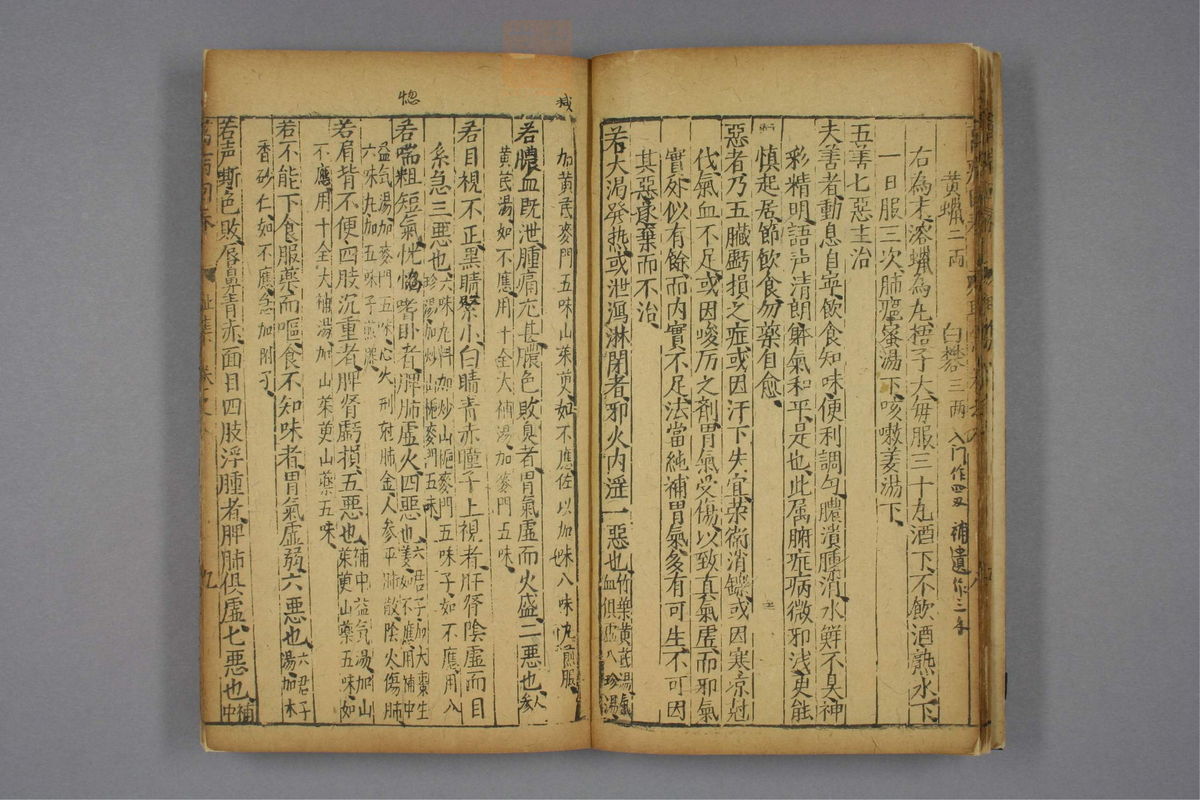 黄蠟二兩　白礬三兩 入门作四双 補遺作三
右為末溶蠟為丸梧子大每服三十丸酒下不飲酒熟水下
一日服三次肺癰蜜湯下咳嗽姜湯下
五善七惡主治
夫善者動息自寧飲食知味便利調匀膿潰腫消水鮮不臭神
彩精明語声清朗躰氣和平是也此属腑症病微邪浅更能
慎起居節飲食勿藥自愈
惡者乃五臓虧損之症或因汗下失宜荣衛消鑠或因寒凉尅
伐氣血不足或因峻厉之剤胃氣受傷以致真氣虚而邪氣
實外似有餘而内實不足法當純補胃氣多有可生不可因
其惡遂棄而不治
若大渴発热或泄瀉淋閉者邪火内淫一惡也竹葉黄芪湯氣
血俱虚八珍湯
加黄芪麥門五味山茱萸如不應佐以加味八味丸煎服
减
若膿血既泄腫痛尤甚膿色敗臭者胃氣虚而火盛二惡也人参
黄芪湯如不應用十全大補湯加麥門五味
若目視不正黒睛緊小白睛青赤瞳子上視者肝腎陰虚而目
系急三惡也六味丸料加炒山梔麥門五味子如不應用八
珍湯加炒山梔麥門五味
惚
若喘粗短氣恍惚嗜卧者脾肺虚火四惡也六君子加大棗生
姜如不應用補中
益氣湯加麥門五味心火刑尅肺金人参平肺散陰火傷肺
六味丸加五味子煎服
若肩背不便四肢沉重者脾腎虧損五惡也補中益氣湯加山
茱萸山藥五味如
不應用十全大補湯加山茱萸山藥五味
若不能下食服藥而嘔食不知味者胃氣虚弱六惡也六君子
湯加木
香砂仁如不應急加附子
若声嘶色敗唇鼻青赤面目四肢浮腫者脾肺俱虚七惡也補
中